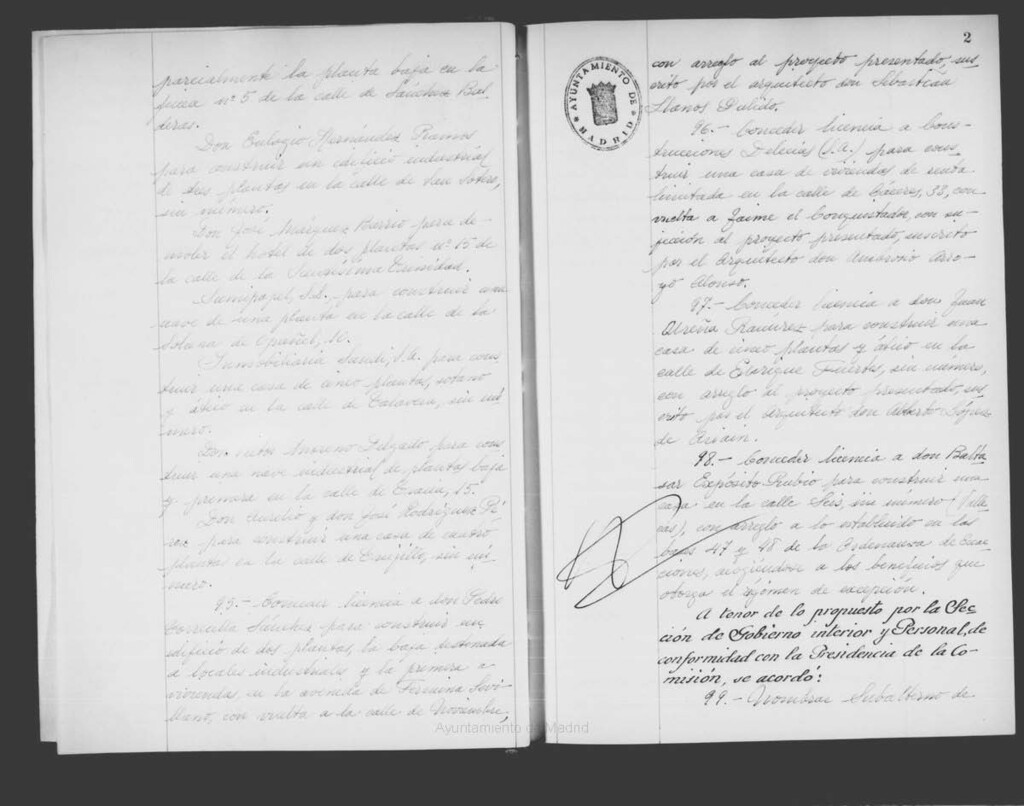 parcialmente la planta baja en la
finca nº 5 de la calle de Sánchez Bal-
deras.
Don Eulogio Hernández Ramos
para construir un edificio industrial
de tres plantas en la calle de San Sotero,
sin número.
Don José Márquez Barrio para de-
moler el hotel de dos plantas nº 15 de
la calle de la Santísima Trinidad.
Sumipapel, S.L. para construir una
nave de una planta en la calle de la
Solana de Opañel,
Inmobiliaria Sandi, S.A. para cons-
truir una casa de cinco plantas, sótano
y ático en la calle de Talavera, sin nú-
mero.
Don Moreno Delgado para cons-
truir una nave industrial de plantas baja
y primera en la calle de 15.
Don Aurelio y don José Rodríguez Pé-
rez para construir una casa de cuatro
plantas en la calle de Trujillo, sin nú-
mero.
95.- Conceder licencia a don Pedro
Torrecilla Sánchez para construir un
edificio de dos plantas, la baja destinada
a locales industriales y la primera a
vivienda, en la avenida de
con vuelta a la calle de Noviembre,
2
con arreglo al proyecto presentado, sus-
crito por el arquitecto don Sebastián
Llanos Pulido.
96.- Conceder licencia a Cons-
trucciones Delicias (S.A.) para cons-
truir una casa de viviendas de renta
limitada en la calle de Cáceres, 38, con
vuelta a Jaime el Conquistador, con su-
jección al proyecto presentado, suscrito
por el Arquitecto don Ambrosio Arro-
yo Alonso.
97.- Conceder licencia a don Juan
Ramírez para construir una
casa de cinco plantas y ático en la
calle de Enrique Fuentes, sin número,
con arreglo al proyecto presentado, sus-
crito por el arquitecto don Alberto López
de Asiain.
98.- Conceder licencia a don Balta-
sar Expósito Rubio para construir una
casa en la calle Seis, sin número (Valle-
cas), con arreglo a lo establecido en las
bases 47 y 48 de la Ordenanza de Exac-
ciones, acogiéndose a los beneficios que
otorga el régimen de excepción.
A tenor de lo propuesto por la Sec-
ción de Gobierno interior y Personal, de
conformidad con la Presidencia de la Co-
misión, se acordó:
99.- Nombrar Subalterno de
AYUNTAMIENTO DE MADRID
Ayuntamiento de Madrid